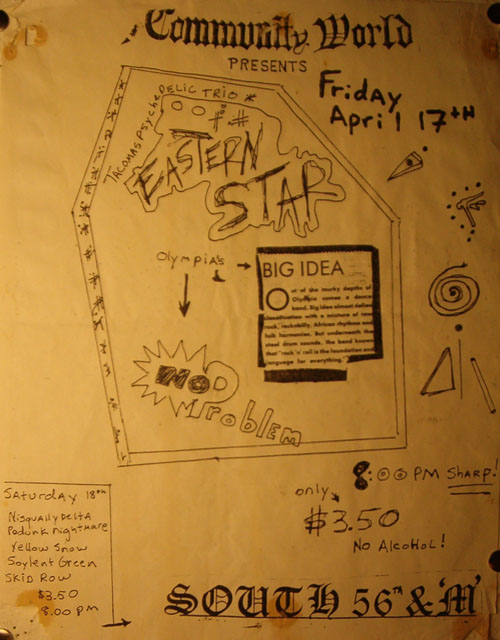 Community World
PRESENTS
Friday
April 17th
TACOMAS PSYCHEDELIC TRIO
EASTERN
STAR
Olympia's
BIG IDEA
Out of the murky depths of
Olympia comes a dance
band. Big Idea almost defies
classification with a mixture of
rock, rockabilly, African rhythms and
folk harmonies. But underneath the
steel drum sounds, the band known
that "rock 'n' roll is the foundation and
language for everything."
NO
Problem
8:00 PM SHARP!
only
$3.50
No Alcohol!
Saturday 18th
Nisqually Delta
Podunk Nightmare
Yellow Snow
Soylent Green
SKID ROW
$3.50
8:00 PM
SOUTH 56th & 'M'